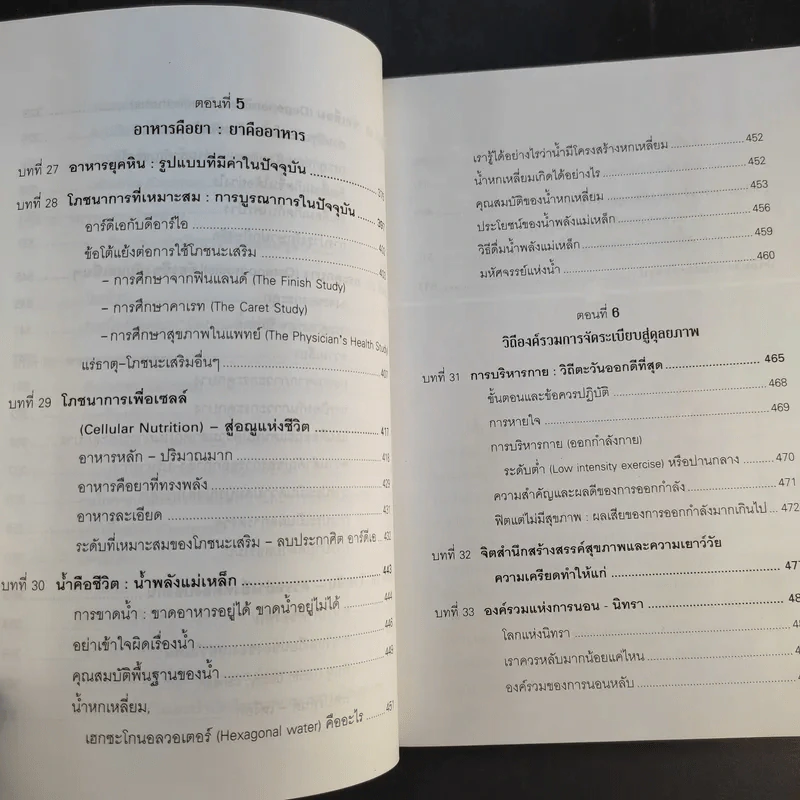 ตอนที่ 5
อาหารคือยา : ยาคืออาหาร
บทที่ 27 อาหารยุคหิน : รูปแบบที่มีค่าในปัจจุบัน
บทที่ 28 โภชนาการที่เหมาะสม : การบูรณาการในปัจจุบัน
อาร์ดีเอกับดีอาร์ไอ
ข้อโต้แย้งต่อการใช้โภชนะเสริม
– การศึกษาจากฟินแลนด์ (The Finish Study)
– การศึกษาคาเรท (The Caret Study)
–การศึกษาสุขภาพในแพทย์ (The Physician's Health Study)
แร่ธาตุ–โภชนะเสริมอื่นๆ
บทที่ 29 โภชนาการเพื่อเซลล์
(Cellular Nutrition) – สู่อณูแห่งชีวิต 411
อาหารหลัก – ปริมาณมาก 418
อาหารคือยาที่ทรงพลัง 429
อาหารละเอียด 431
ระดับที่เหมาะสมของโภชนะเสริม – ลบประกาศิต อาร์ดีเอ 432
บทที่ 30 น้ำคือชีวิต : น้ำพลังแม่เหล็ก 443
การขาดน้ำ : ขาดอาหารอยู่ได้ ขาดน้ำอยู่ไม่ได้ 444
อย่าเข้าใจผิดเรื่องน้ำ 446
คุณสมบัติพื้นฐานของน้ำ 449
น้ำหกเหลี่ยม,
เฮกซะโกนอลวอเตอร์ (Hexagonal water) คืออะไร 451
เรารู้ได้อย่างไรว่าน้ำมีโครงสร้างหกเหลี่ยม 452
น้ำหกเหลี่ยมเกิดได้อย่างไร 452
คุณสมบัติของน้ำหกเหลี่ยม 453
ประโยชน์ของน้ำพลังแม่เหล็ก 456
วิธีดื่มน้ำพลังแม่เหล็ก 459
มหัศจรรย์แห่งน้ำ 460
ตอนที่ 6
วิถีองค์รวมการจัดระเบียบสู่ดุลยภาพ
บทที่ 31 การบริหารกาย : วิถีตะวันออกดีที่สุด 465
ขั้นตอนและข้อควรปฏิบัติ 468
การหายใจ 469
การบริหารกาย (ออกกำลังกาย)
ระดับต่ำ (Low intensity exercise) หรือปานกลาง 470
ความสำคัญและผลดีของการออกกำลัง 471
ฟิตแต่ไม่มีสุขภาพ : ผลเสียของการออกกำลังมากเกินไป 472
บทที่ 32 จิตสำนึกสร้างสรรค์สุขภาพและความเยาว์วัย
ความเครียดทำให้แก่ 477
บทที่ 33 องค์รวมแห่งการนอน - นิทรา
โลกแห่งนิทรา
เราควรหลับมากน้อยแค่ไหน
องค์รวมของการนอนหลับ